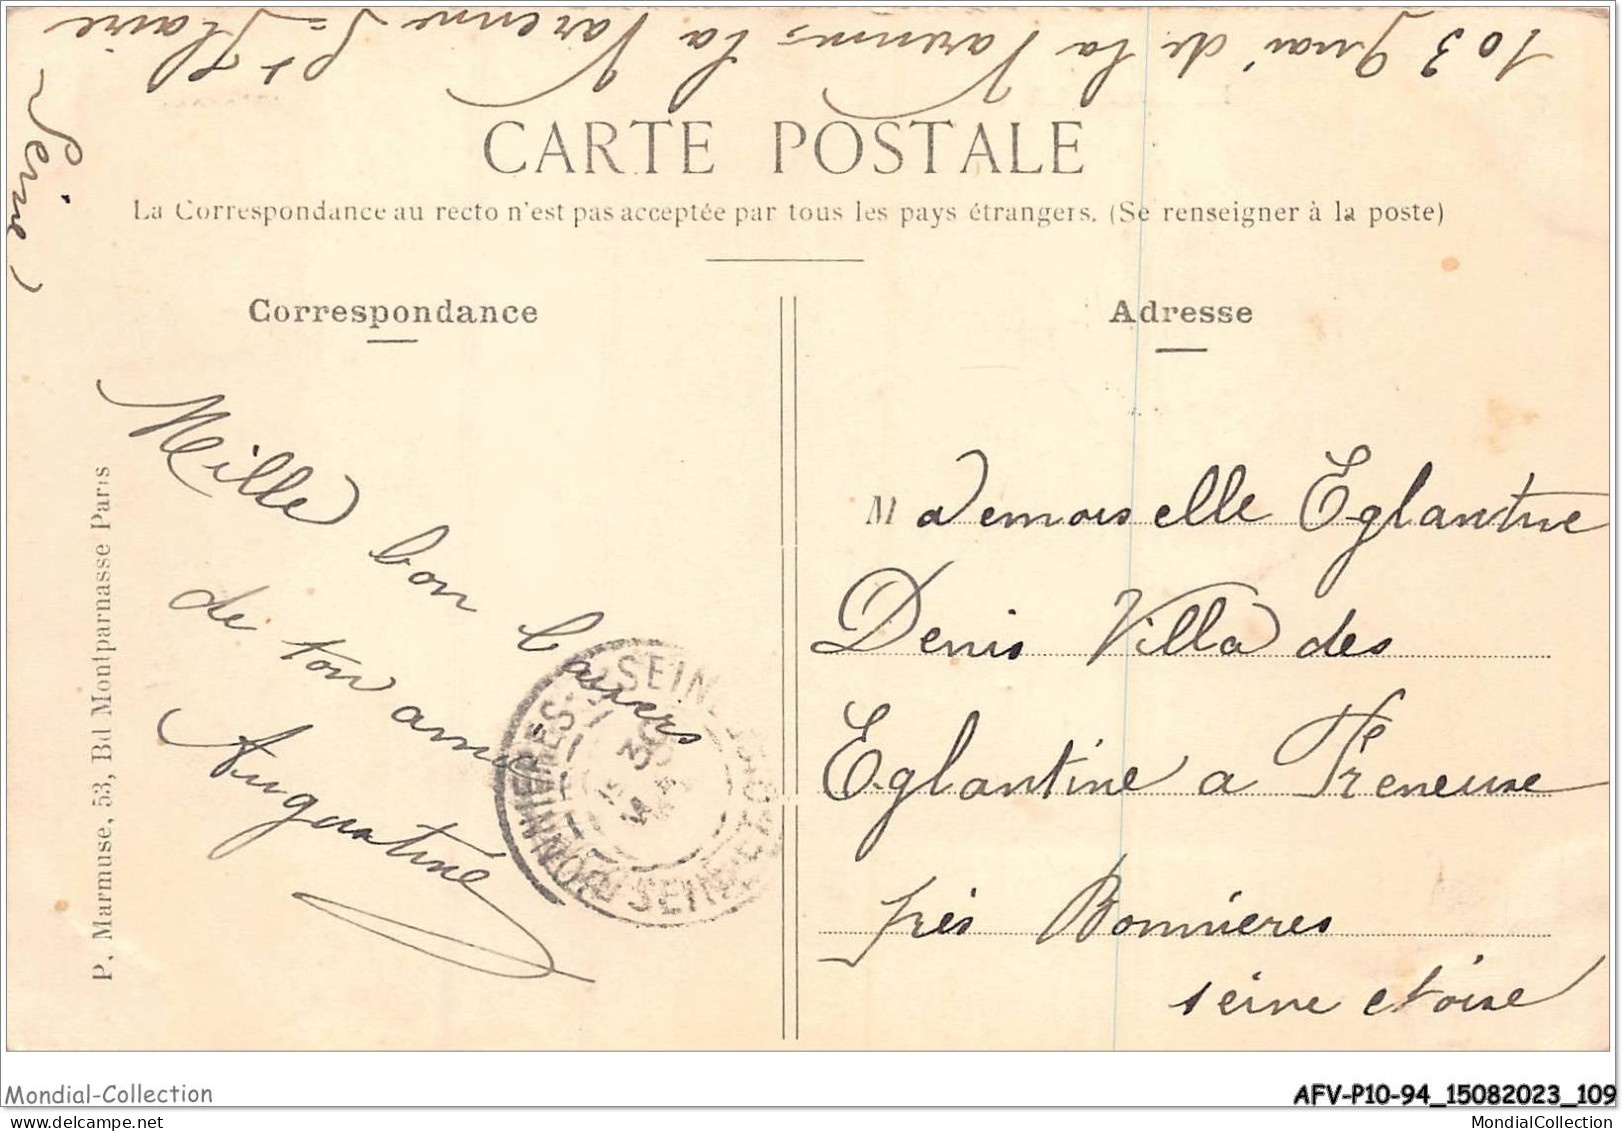 103 Quai de la Varenne la Varenne St Hlaire
Seine
CARTE POSTALE
La Correspondance au recto n'est pas acceptée par tous les pays étrangers. (Se renseigner à la poste)
Correspondance
Adresse
Mille bon baisers
de ton amie
Augustine
Mademoiselle Eglantine
Denis Villa des
Eglantine a Freneuse
près Bonnieres
seine et oise
P. Marmuse, 53, Bd Montparnasse Paris
BONNIÈRES-S-SEINE
SEINE-ET-OISE
30
Mondial-Collection
AFV-P10-94_15082023_109
MondialCollection